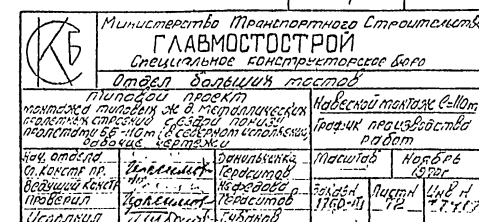 СКБ
Министерство Транспортного Строительства
ГЛАВМОСТОСТРОЙ
Специальное конструкторское бюро
Отдел больших мостов
Типовой проект
монтажа типовых ж.д. металлических
пролетных строений с ездой понизу
пролетами 55-110м (в северном исполнении)
рабочие чертежи
Навесной монтаж ℓ=110м
График производства
работ
Нач. отдела Данильченко Масштаб Ноябрь
Гл. констр. пр. Герасимов
Ведущий констр Нефедова Заказ Листн
Проверил Герасимов 72
Исполнил Губанов